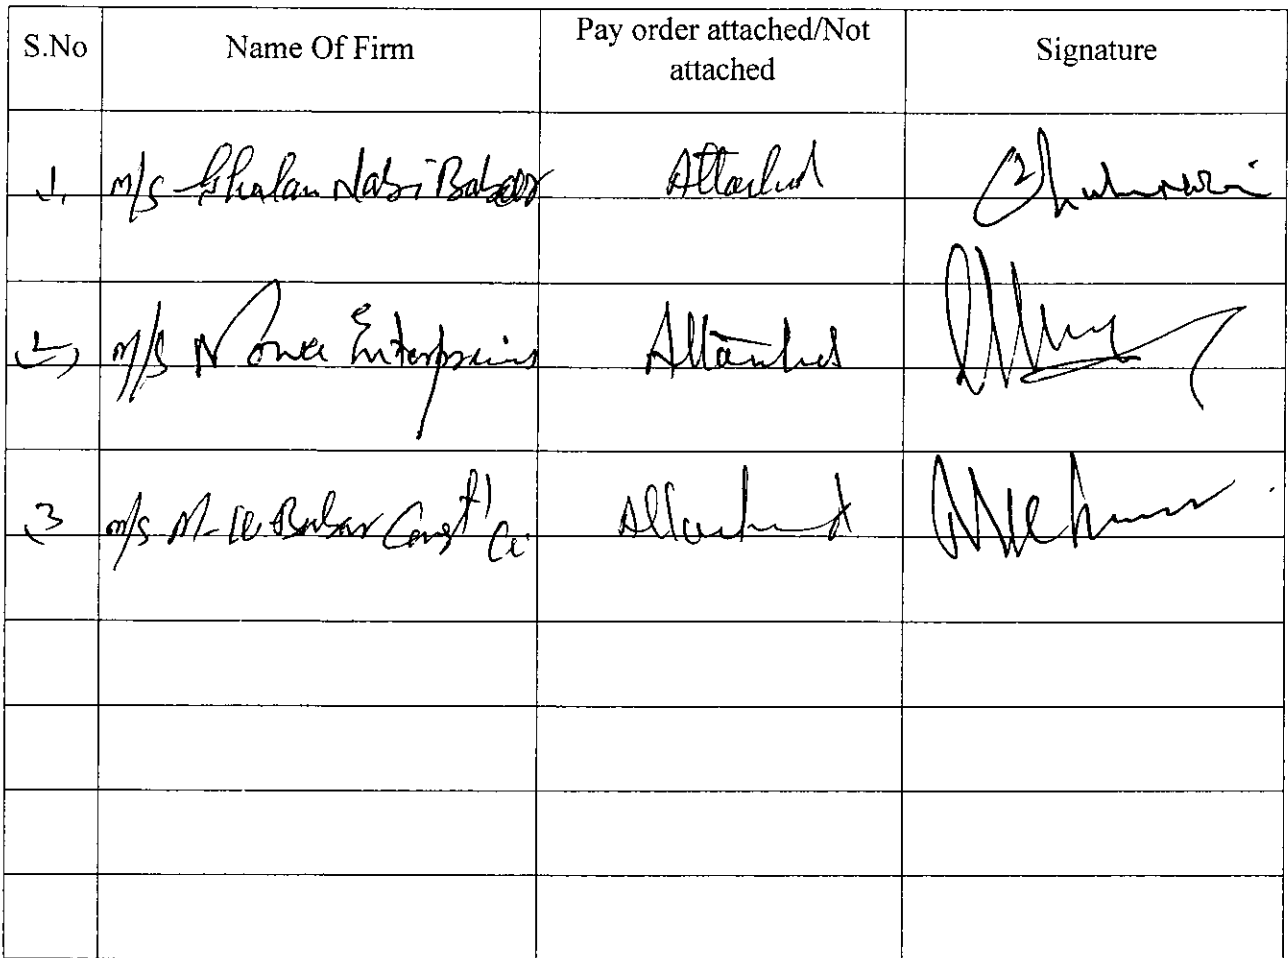 S.No Name Of Firm Pay order attached/Not attached Signature
1. M/S Ghulam Nabi Babar Attached
2) M/S Enterprises Attached
3 M/S Babar Const Co. Attached